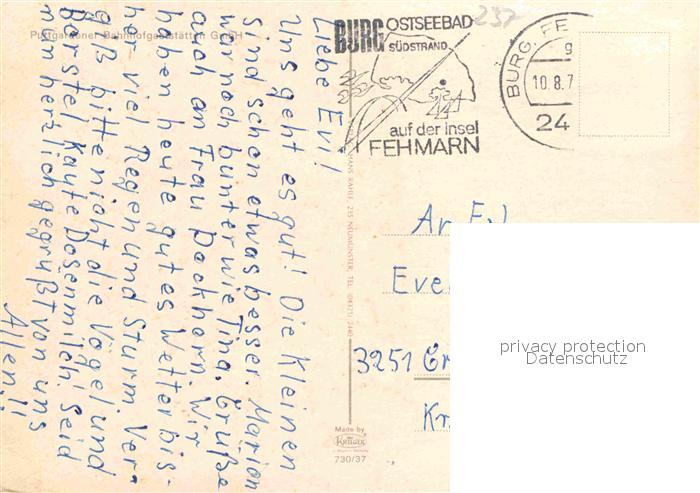 Puttgardener Bahnhofgaststätten GmbH
Liebe Evi!
Uns geht es gut! Die Kleinen
sind schon etwas besser. Marion
war noch bunter wie Tina. Grüße
auch an Frau Pockhorn. Wir
haben heute gutes Wetter bis-
her viel Regen und Sturm. Ver-
giß bitte nicht die Vögel und
Borstel kaufe Dosenmilch. Seid
nun herzlich gegrüßt von uns
Allen!!
237
BURG OSTSEEBAD
SÜDSTRAND
auf der insel
FEHMARN
BURG, FE
g
10.8.7
24
235 NEUMÜNSTER, TEL.
An Frl
Eve
3251 Gr
Kr
privacy protection
Datenschutz
Made by
Krüger
730/37